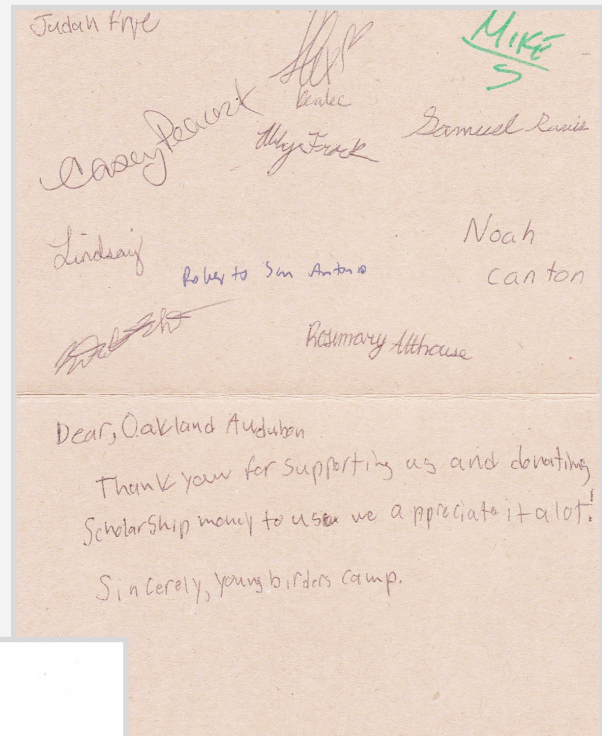 Judah Frye
MIKE
Casey Peacock
Abby Frock
Samuel
Lindsay
Roberto San Antonio
Noah
Canton
Rosemary Althouse
Dear, Oakland Audubon
Thank your for supporting us and donating
Scholarship money to us we appriciate it alot!
Sincerely, young birders camp.